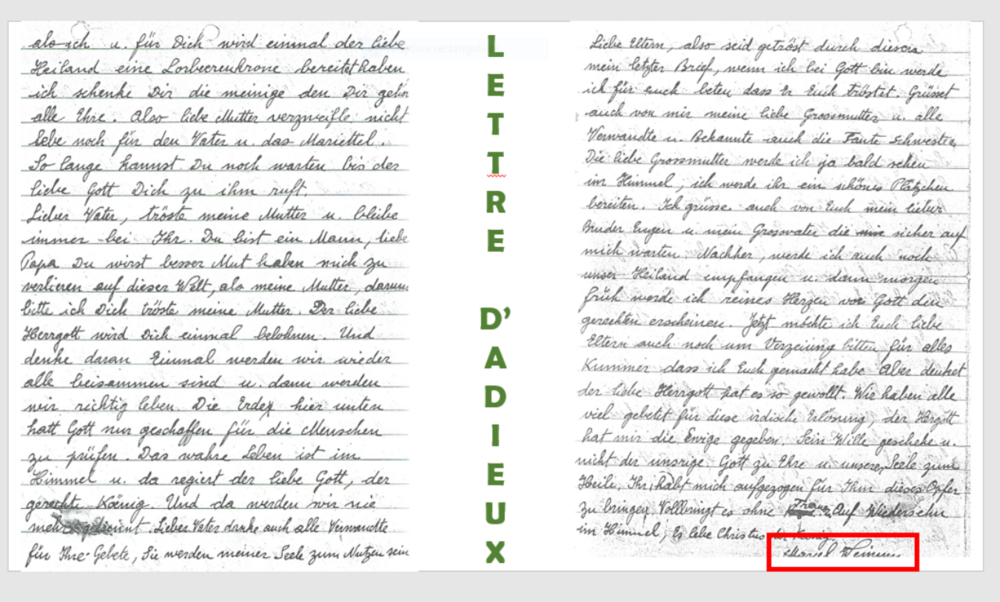 als ich u. für Dich wird einmal der liebe
Heiland eine Lorbeerenkrone bereitet haben
ich schenke Dir die meinige den Dir gehör
alle Ehre. Also liebe Mutter verzweifle nicht
lebe noch für den Vater u. das Mariettel.
So lange kannst Du noch warten bis der
liebe Gott Dich zu ihm ruft.
Lieber Vater, tröste meine Mutter u. bleibe
immer bei Ihr. Du bist ein Mann, liebe
Papa Du wirst besser Mut haben mich zu
verlieren auf dieser Welt, als meine Mutter, darum
bitte ich Dich tröste meine Mutter. Der liebe
Herrgott wird Dich einmal belohnen. Und
denke daran Einmal werden wir wieder
alle beisammen sind u. dann werden
wir richtig leben. Die Erde hier unten
hatt Gott nur geschaffen für die Menschen
zu prüfen. Das wahre Leben ist im
Himmel u. da regiert der liebe Gott, der
gerechte König. Und da werden wir nie
mehr getrennt. Lieber Vater danke auch alle Verwandte
für Ihre Gebete, Sie werden meiner Seele zum Nutzen sein
LETTRE
D'ADIEUX
Liebe Eltern, also seid getröst durch diesen
mein letzter Brief, wenn ich bei Gott bin werde
ich für euch beten dass Er Euch tröstet. Grüsset
auch von mir meine liebe Grossmutter u. alle
Verwandte u. Bekannte auch die Tante Schwester
Die liebe Grossmutter werde ich ja bald sehen
im Himmel, ich werde ihr ein schönes Plätzchen
bereiten. Ich grüsse auch von Euch mein lieber
Bruder Eugen u. mein Grossvater die sicher auf
mich warten. Nachher, werde ich auch noch
unser Heiland empfangen u. dann morgen
früh werde ich reines Herzen vor Gott den
gerechten erscheinen. Jetzt möchte ich Euch liebe
Eltern auch noch um Verzeiung bitten für alles
Kummer dass ich Euch gemacht habe Aber denket
der liebe Herrgott hat es so gewollt. Wie haben alle
viel gebetet für diese irdische Erlösung, der Hergott
hat mir die Ewige gegeben. Sein Wille geschehe u.
nicht der unsrige. Gott zu Ehre u. unserer Seele zum
Heile. Ihr habt mich aufgezogen für Ihm dieses Opfer
zu bringen. Vollbringt es ohne Auf Wiedersehn
im Himmel, Es lebe Christus der König
Marcel Weinum